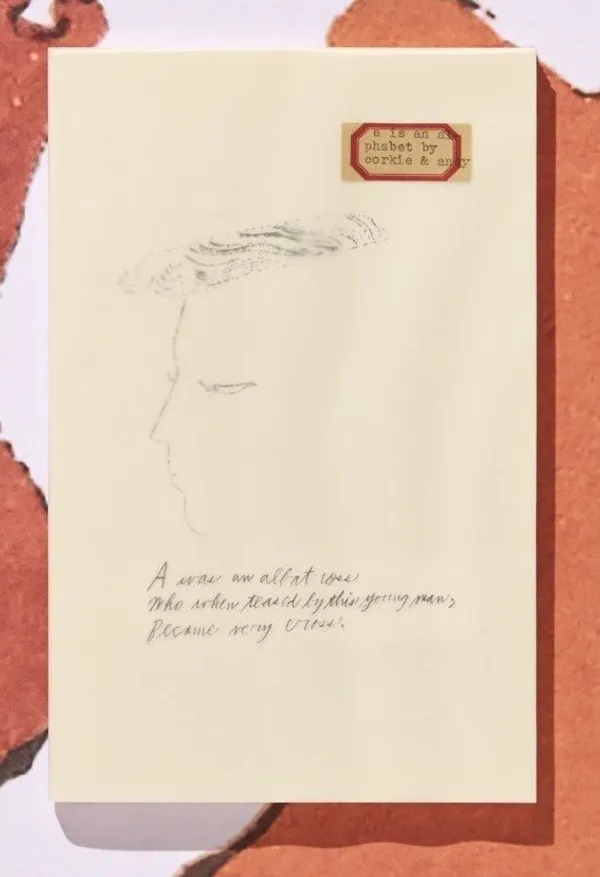 a is an al-
phabet by
corkie & andy
A was an albatross
Who when teased by this young man,
Became very cross.